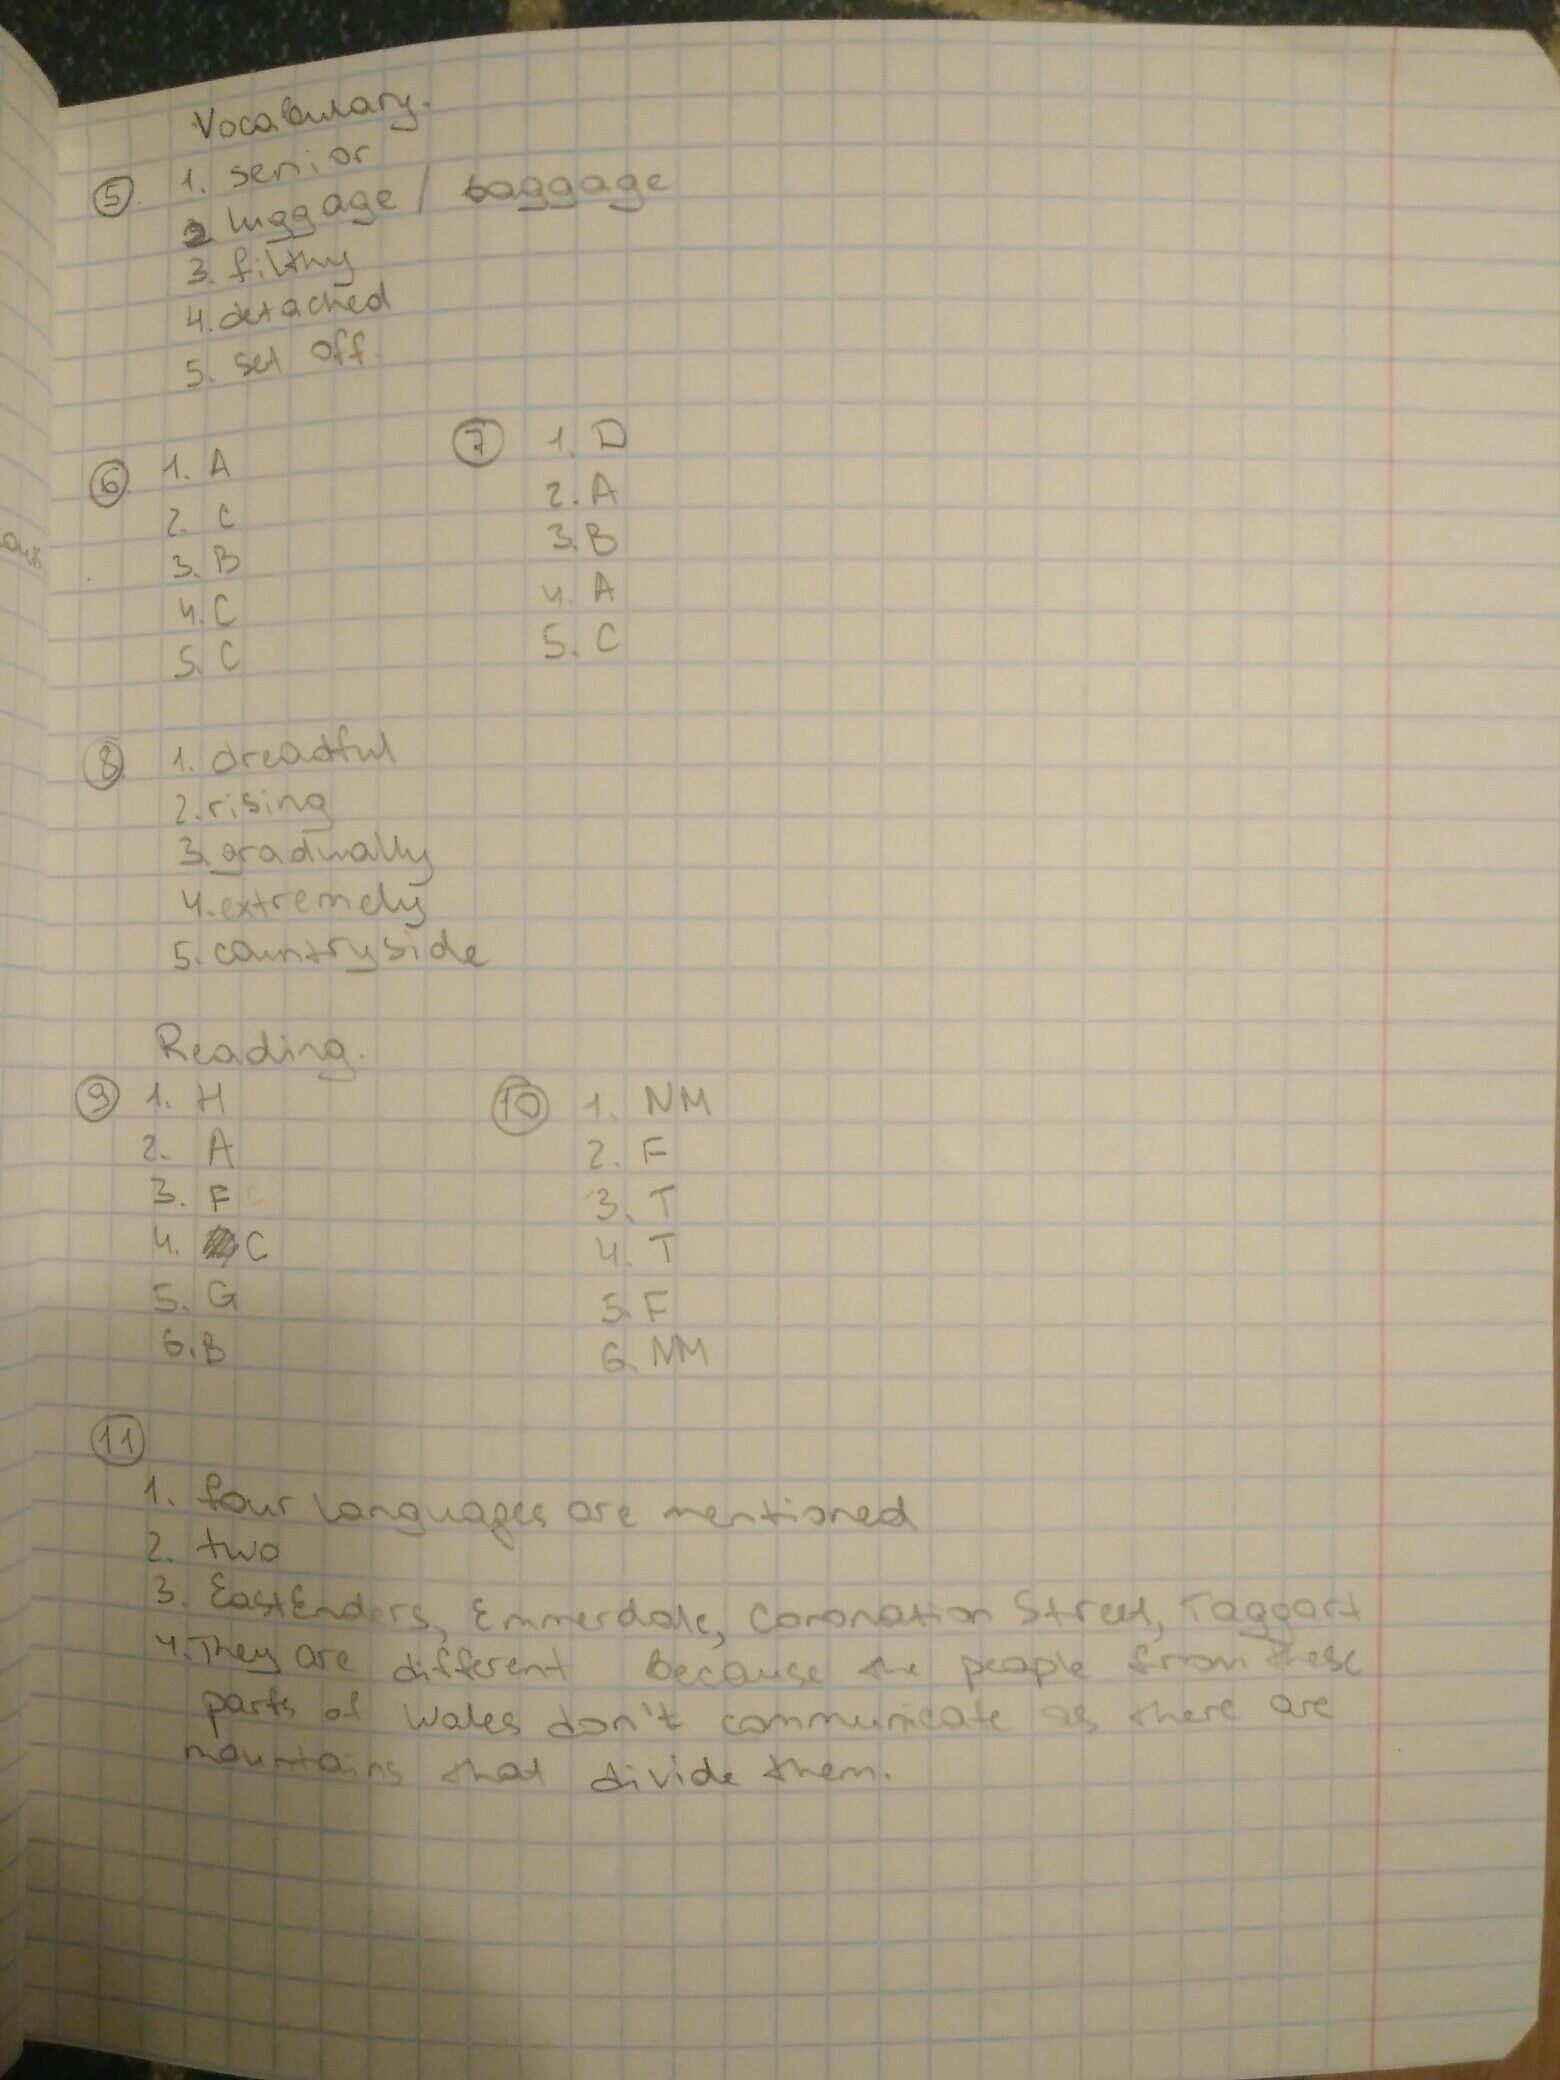 Vocabulary.
5 1. senior
2 luggage / baggage
3. filthy
4. detached
5. set off.
6 1. A
2. C
3. B
4. C
5. C
7 1. D
2. A
3. B
4. A
5. C
8 1. dreadful
2. rising
3. gradually
4. extremely
5. countryside
Reading.
9 1. H
2. A
3. F C
4. C
5. G
6. B
10 1. NM
2. F
3. T
4. T
5. F
6. NM
11
1. four languages are mentioned
2. two
3. EastEnders, Emmerdale, Coronation Street, Taggart
4. They are different because the people from these
parts of Wales don't communicate as there are
mountains that divide them.